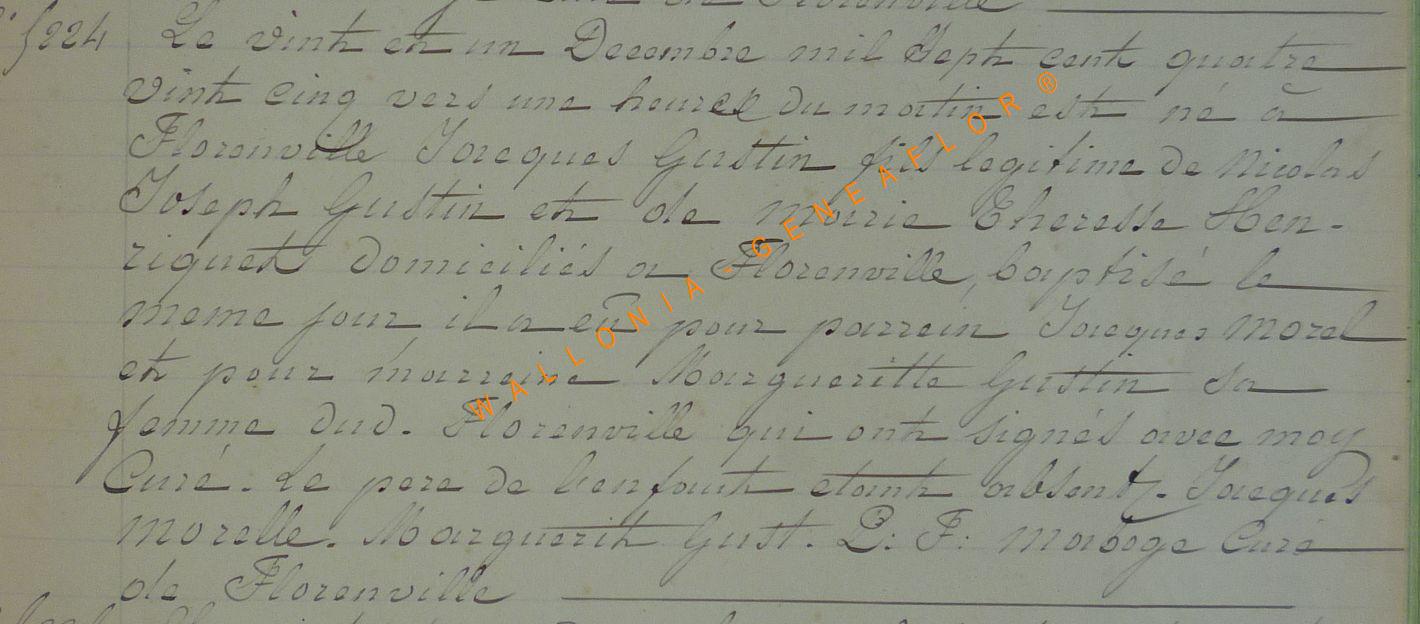 de Florenville
5224 Le vint et un Decembre mil Sept cent quatre
vint cinq vers une heure du matin est né à
Florenville Jacques Gustin fils legitime de Nicolas
Joseph Gustin et de marie Theresse Hen-
riquet domiciliés a Florenville, baptisé le
meme jour il a eû pour parrein Jacques Morel
et pour marreine Margueritte Gustin sa
femme dud. Florenville qui ont signés avec moy
Curé. Le pere de l'enfant etant absent. Jacques
morelle. Marguerit Gust. P: F: Maboge Curé
de Florenville
WALLONIA-GENEAFLOR®